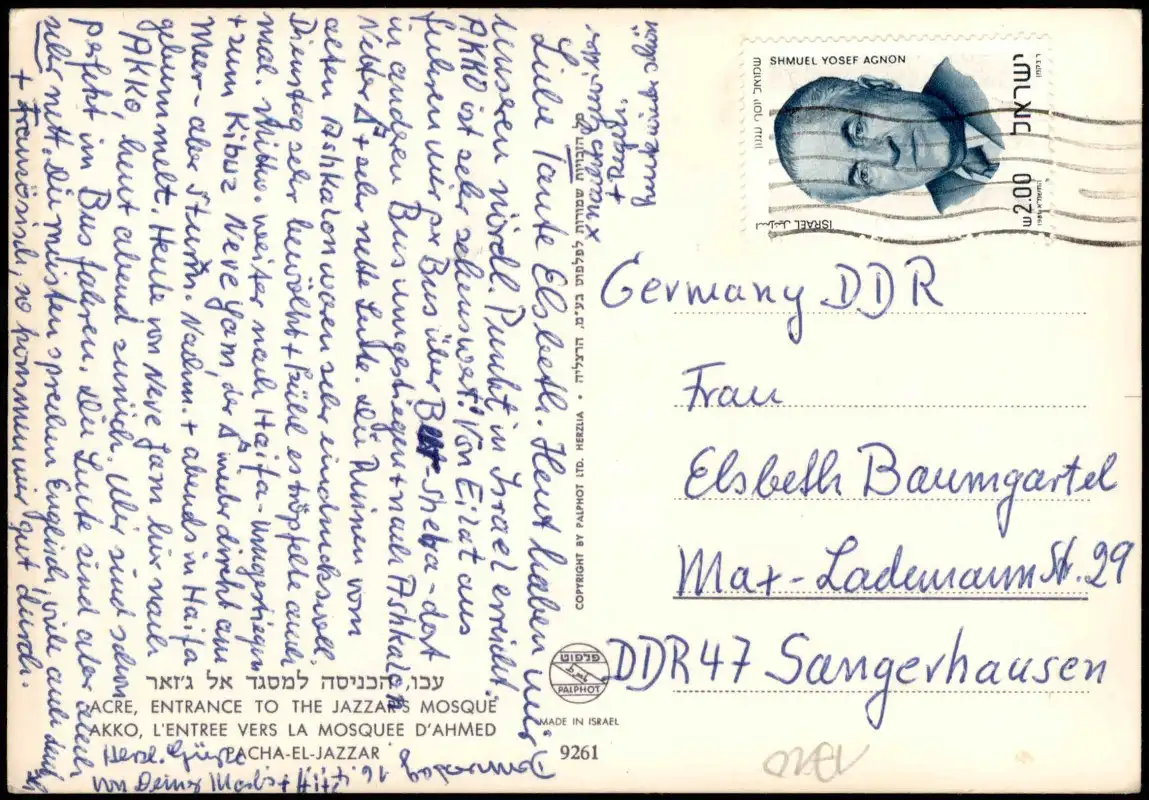 Donnerstag 16.
Liebe Tante Elsbeth. Heut haben wir
unseren nördl. Punkt in Israel erreicht.
AKKO ist sehr sehenswert! Von Eilat aus
fuhren wir per Bus über B -Sheba - dort
in anderen Bus umgestiegen + nach Ashkalon
+ sehr nette Leute. Die Ruinen vom
alten Ashkalon waren sehr eindrucksvoll.
Dienstag sehr bewölkt + kühl es tröpfelte auch
mal. Mittw. weiter nach Haifa - Umgestiegen
+ zum Kibuz Neve Yam, der wieder direkt am
Meer - aber Sturm. Nachm. + abends in Haifa
gebummelt. Heute von Neve Yam hier nach
AKKO, heut abend zurück. Wir sind schon
perfekt im Bus fahren. Die Leute sind aber auch
sehr nett, die meisten sprechen Englisch, viele auch
+ französisch, so kommen wir gut durch.
Herzl. Grüße
von Deiner + Fritz
+ Regen.
heute wieder schön
כל הזכויות שמורות לפלפוט בע"מ, הרצליה • COPYRIGHT BY PALPHOT LTD. HERZLIA
SHMUEL YOSEF AGNON
שמואל יוסף עגנון
ישראל
ISRAEL
2.00
Germany DDR
Frau
Elsbeth Baumgartel
Max-Lademann Str. 29
DDR 47 Sangerhausen
עכו, הכניסה למסגד אל ג'זאר
ACRE, ENTRANCE TO THE JAZZAR'S MOSQUE
AKKO, L'ENTREE VERS LA MOSQUEE D'AHMED
PACHA-EL-JAZZAR
פלפוט
PALPHOT
MADE IN ISRAEL
9261